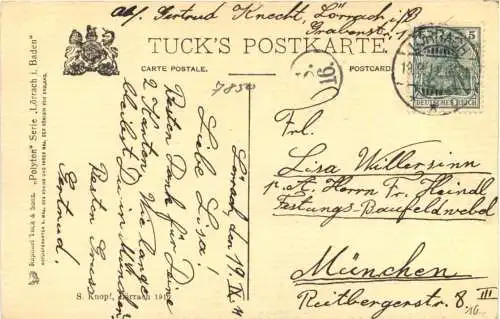 Abs. Gertrud Knecht, Lörrach i/B
Grabenstr. 1
TUCK'S POSTKARTE.
CARTE POSTALE.
POSTCARD.
16.
5
DEUTSCHES REICH
7850
Lörrach, den 19. IV.
Liebe Lisa!
Besten Dank für Deine
2 Karten. Wie lange
bleibst Du in München
Besten Gruss
Gertrud.
Frl.
Lisa Willersinn
p. A. Herrn Fr. Heindl
Festungs-Baufeldwebel
München
Reitbergerstr. 8 III
"Polyton" Serie „Lörrach i. Baden"
S. Knopf, Lörrach